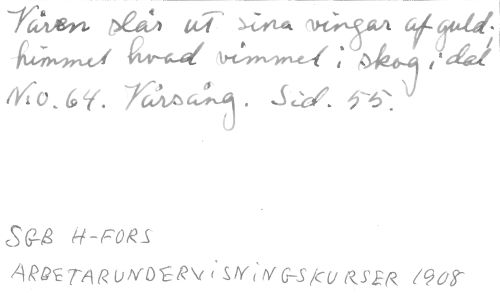 Våren slår ut sina vingar af guld;
himmel hvad vimmel i skog i dal
No. 64. Vårsång. Sid. 55.
SGB H-FORS
ARBETARUNDERVISNINGSKURSER 1908